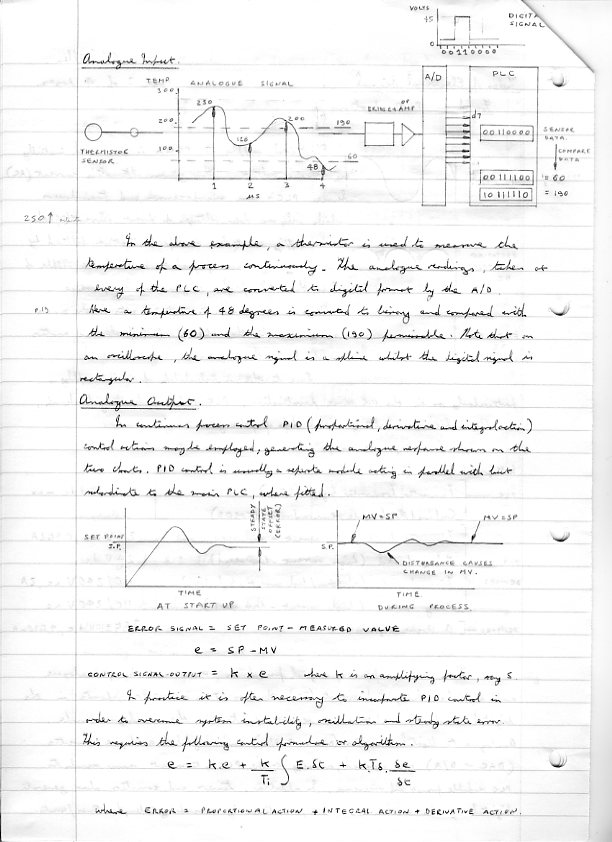 VOLTS
+5
0
DIGITAL
SIGNAL
00110000
Analogue Input.
TEMP ANALOGUE SIGNAL
300
200
100
250
120
200
190
60
48
1 2 3 4
µS
THERMISTOR
SENSOR
BRIDGE OP AMP
A/D
PLC
d7
00110000
SENSOR
DATA
COMPARE
DATA
00111100 = 60
10111110 = 190
250↑
In the above example, a thermistor is used to measure the
temperature of a process continuously. The analogue readings, taken at
every of the PLC, are converted to digital format by the A/D
p.19
Here a temperature of 48 degrees is converted to binary and compared with
the minimum (60) and the maximum (190) permissable. Note that on
an oscilloscope, the analogue signal is a spline whilst the digital signal is
rectangular.
Analogue Output.
In continuous process control PID (proportional, derivative and integral action)
control actions may be employed, generating the analogue response shown on the
two charts. PID control is usually a separate module acting in parallel with but
subordinate to the main PLC, where fitted.
SET POINT
S.P.
STEADY
STATE
OFFSET
(ERROR)
TIME
AT START UP
MV = SP
MV = SP
S.P.
DISTURBANCE CAUSES
CHANGE IN MV.
TIME
DURING PROCESS
ERROR SIGNAL = SET POINT - MEASURED VALUE
e = SP - MV
CONTROL SIGNAL OUTPUT = K x e where K is an amplifying factor, say 5.
In practice it is often necessary to incorporate PID control in
order to overcome system instability, oscillation and steady state error.
This requires the following control formulae or algorithm.
e = K.e + K/Ti ∫ E.δC + KTδ.δe/δC
where ERROR = PROPORTIONAL ACTION + INTEGRAL ACTION + DERIVATIVE ACTION.